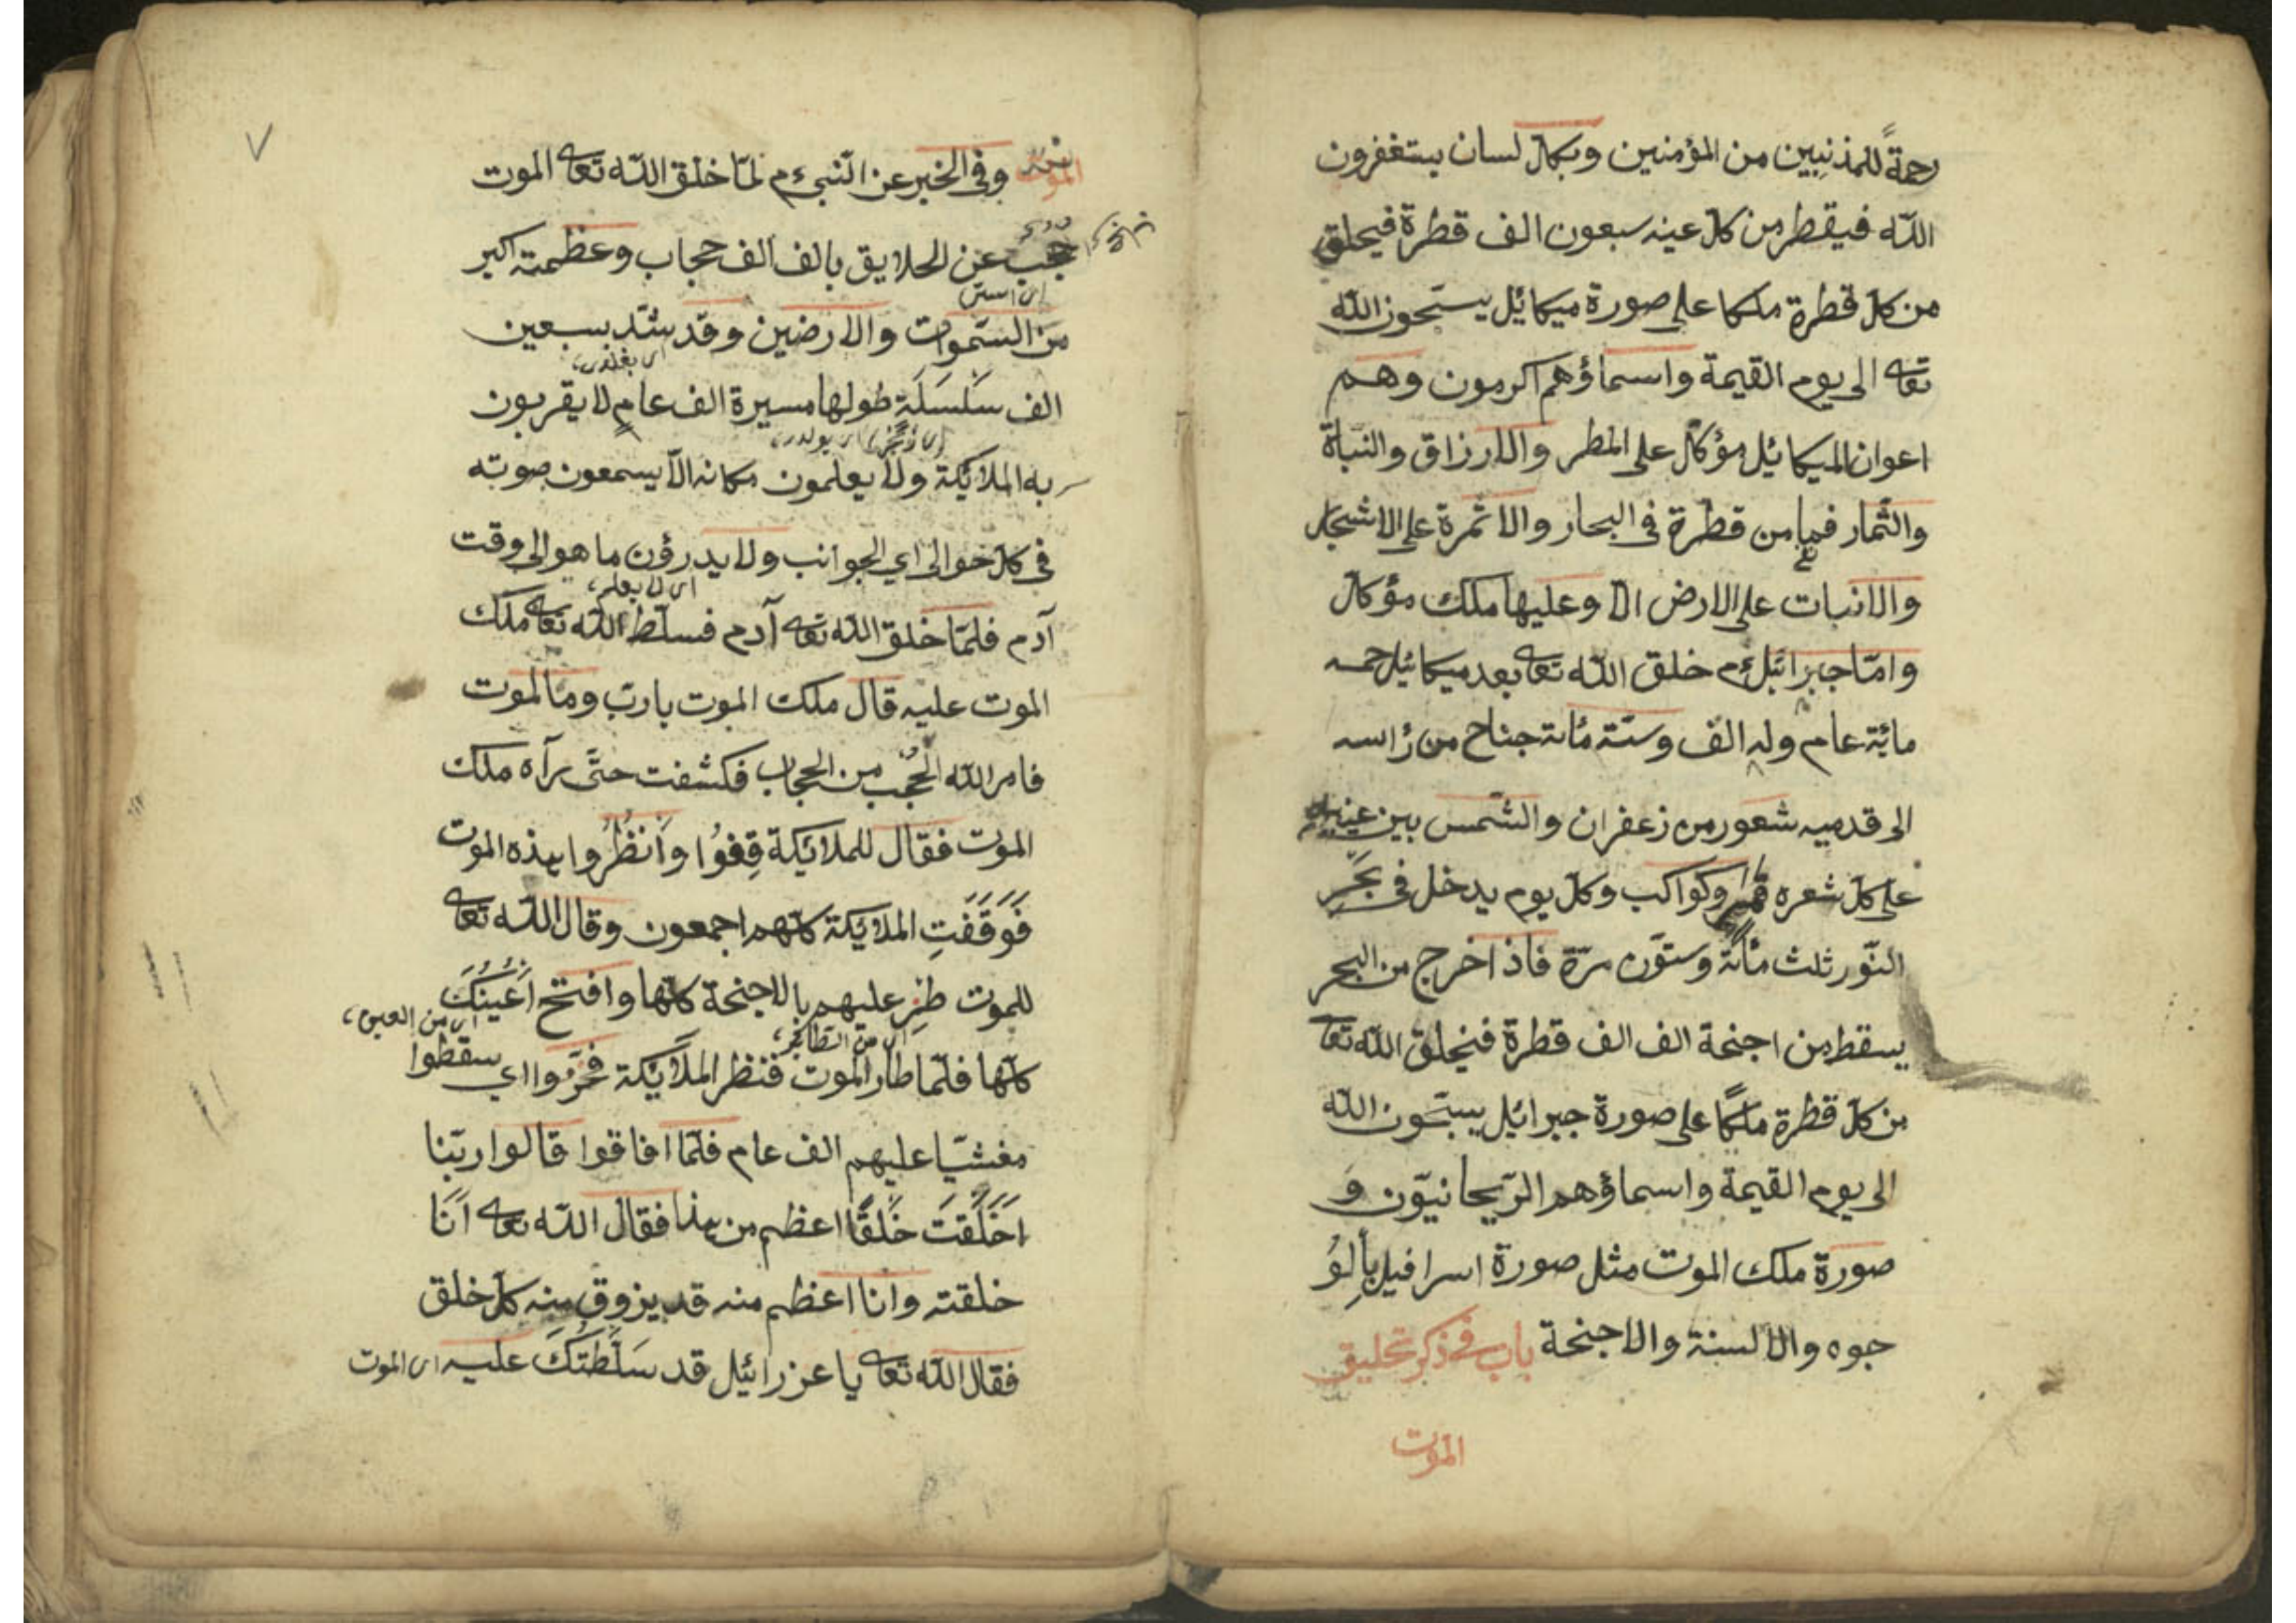 رحمةً للمذنبين من المؤمنين وبكلّ لسان يستغفرون
الله فيقطر من كلّ عينه سبعون الف قطرة فيخلق
من كلّ قطرة ملكا على صورة ميكائيل يسبّحون الله
تعا الى يوم القيمة واسماؤهم اكرمون وهم
اعوان الميكائيل مؤكّل على المطر والارزاق والنباة
والثّمار فما من قطرة فى البحار والاثمرة على الاشجار
والانبات على الارض الّا وعليها ملك مؤكّل
وامّا جبرائيل ءم خلق الله تعا بعد ميكائيل خمسه
مائة عام وله الف وستّة مائة جناح من رأسه
الى قدميه شعور من زعفران والشّمس بين عينيه
على كلّ شعره قمر وكواكب وكلّ يوم يدخل فى بَحْر
النّور ثلث مائة وستّون مرّة فاذا خرج من البحر
يسقط من اجنحة الف الف قطرة فيخلق الله تعا
من كلّ قطرة ملكًا على صورة جبرائيل يسبّحون الله
الى يوم القيمة واسماؤهم الرّيحانيّون وَ
صورة ملك الموت مثل صورة اسرافيل بألوُ
جوه والالسنة والاجنحة باب فى ذكر تخليق
الموت
الموت وفى الخبر عن النّبىءم لمّا خلق الله تعا الموت
حُجُب عن الخلايق بالف الف حجاب وعظمته اكبر
من السّموات والارضين وقد شدّ بسبعين
الف سَلْسَلَة طولها مسيرة الف عام لا يقربون
به الملائكة ولا يعلمون مكانه الّا يسمعون صوته
فى كلّ حوالى اي الجوانب ولا يدرؤن ما هو الى وقت
اى لا يعلم
آدم فلمّا خلق الله تعا آدم فسلّط الله تعا ملك
الموت عليه قال ملك الموت يا ربّ وما الموت
فامر الله الحُجُب من الحجاب فكشفت حتّى رآه ملك
الموت فقال للملائكة قِفُوا وانْظُرُوا بهذه الموت
فَوَقَفَتِ الملائكة كلّهم اجمعون وقال الله تعا
للموت طِرْ عليهم بالاجنحة كلّها وافتح اَعْيُنَكَ
اى من العين
كلّها فلمّا طار الموت فنظر الملائكة فخَرُّوا اي سقطوا
مغشيّا عليهم الف عام فلمّا افاقوا قالوا ربّنا
اخَلَقْتَ خَلْقًا اعظم من هذا فقال الله تعا اَنَا
خلقته وانا اعظم منه قد يزوق منه كلّ خلق
فقال الله تعا يا عزرائيل قد سَلَّطْتُكَ عليه اى الموت